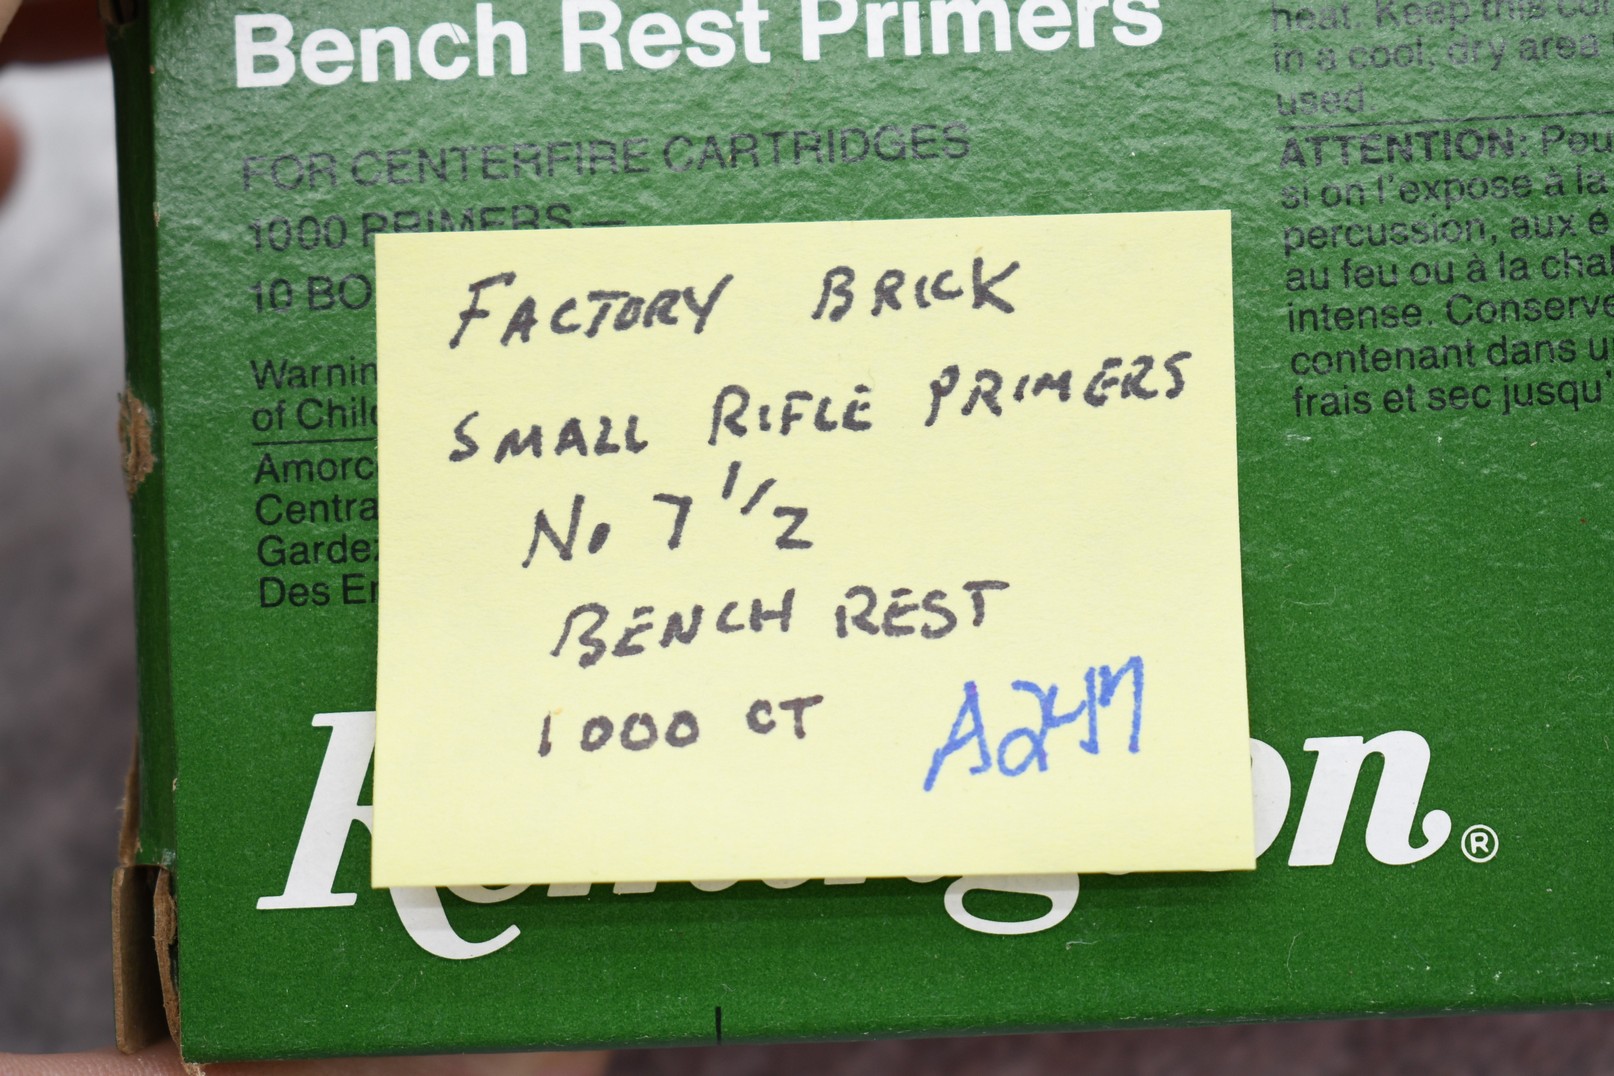 Bench Rest Primers
FOR CENTERFIRE CARTRIDGES
1000 PRIMERS—
10 BO
Warnin
of Chil
Amorc
Centra
Garde
Des
heat. Keep this
in a cool, dry area
used.
ATTENTION: Pou
si on l'expose à la
percussion, aux é
au feu ou à la chal
intense. Conserve
contenant dans u
frais et sec jusqu'
FACTORY BRICK
SMALL RIFLE PRIMERS
No 7 1/2
BENCH REST
1000 CT
Remington®